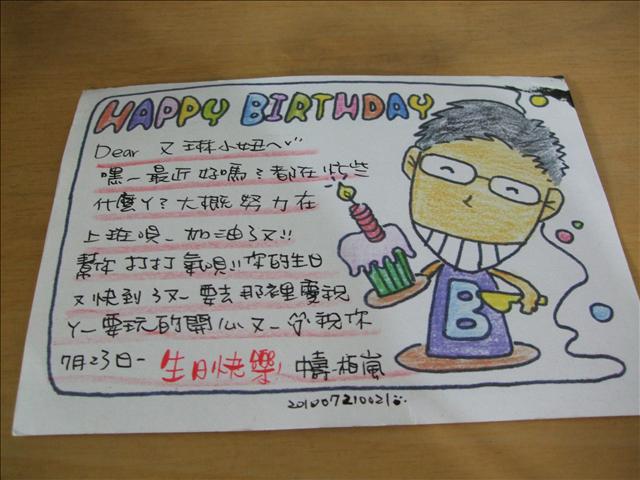 HAPPY BIRTHDAY
Dear 又琳小妞ㄟ
嘿~最近好嗎?都在忙些
什麼ㄚ?大概努力在
上班唄~加油ㄋㄡ!!
幫你打打氣唄!!你的生日
又快到了ㄡ~要去那裡慶祝
ㄚ~要玩的開心ㄡ~祝你
7月23日~生日快樂! 柏嵐
B
201007210021